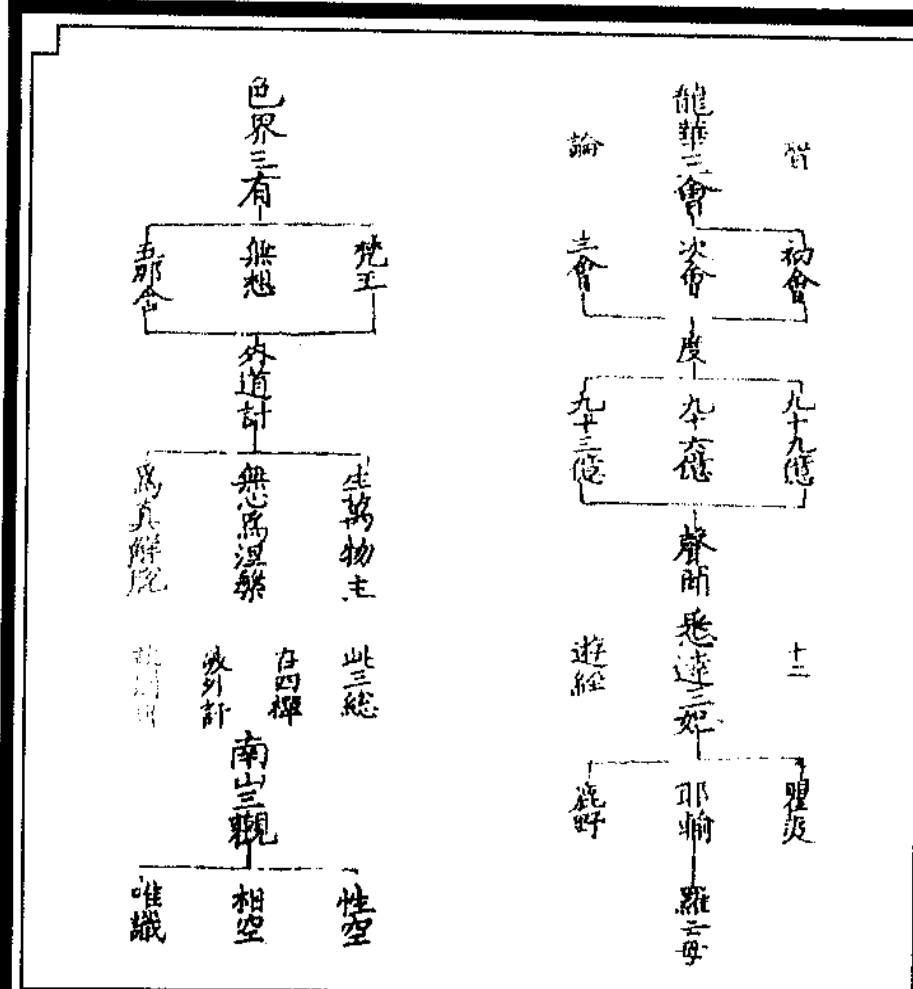 龍華三會
智
論
初會
次會
三會
度
九十九億
九十六億
九十三億
聲聞
悉達三妃
十二
遊經
瞿夷
耶輸
鹿野
羅云母
色界三有
梵王
無想
五那含
外道計
生萬物主
無心為涅槃
為真解脫
此三總
在四禪
被外計
南山三觀
性空
相空
唯識